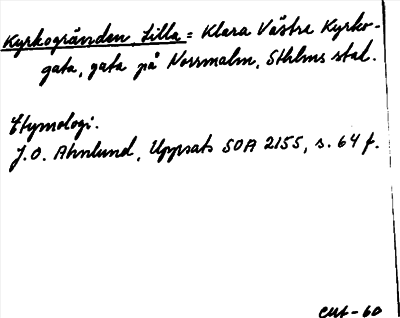 Kyrkogränden, Lilla = Klara Västra Kyrko-
gata, gata på Norrmalm, Sthlms stad.
Etymologi.
J.O. Ahnlund, Uppsats SOA 2155, s. 64 f.